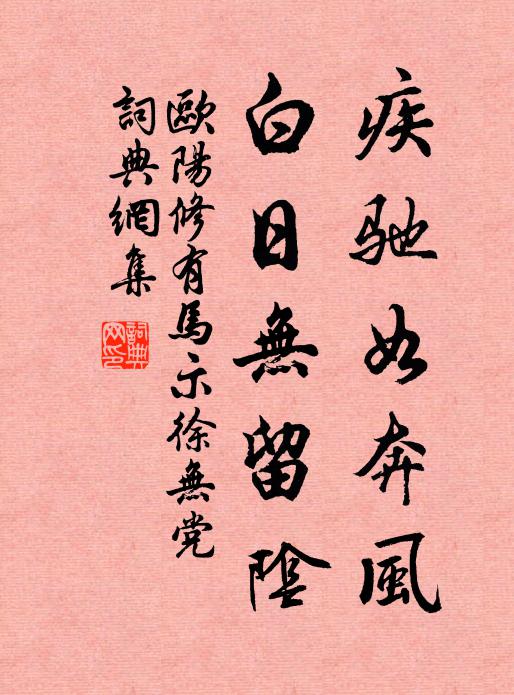 疾驰如奔風
白日無留陰
歐陽修有馬示徐無党
詞典網集
詞典网印